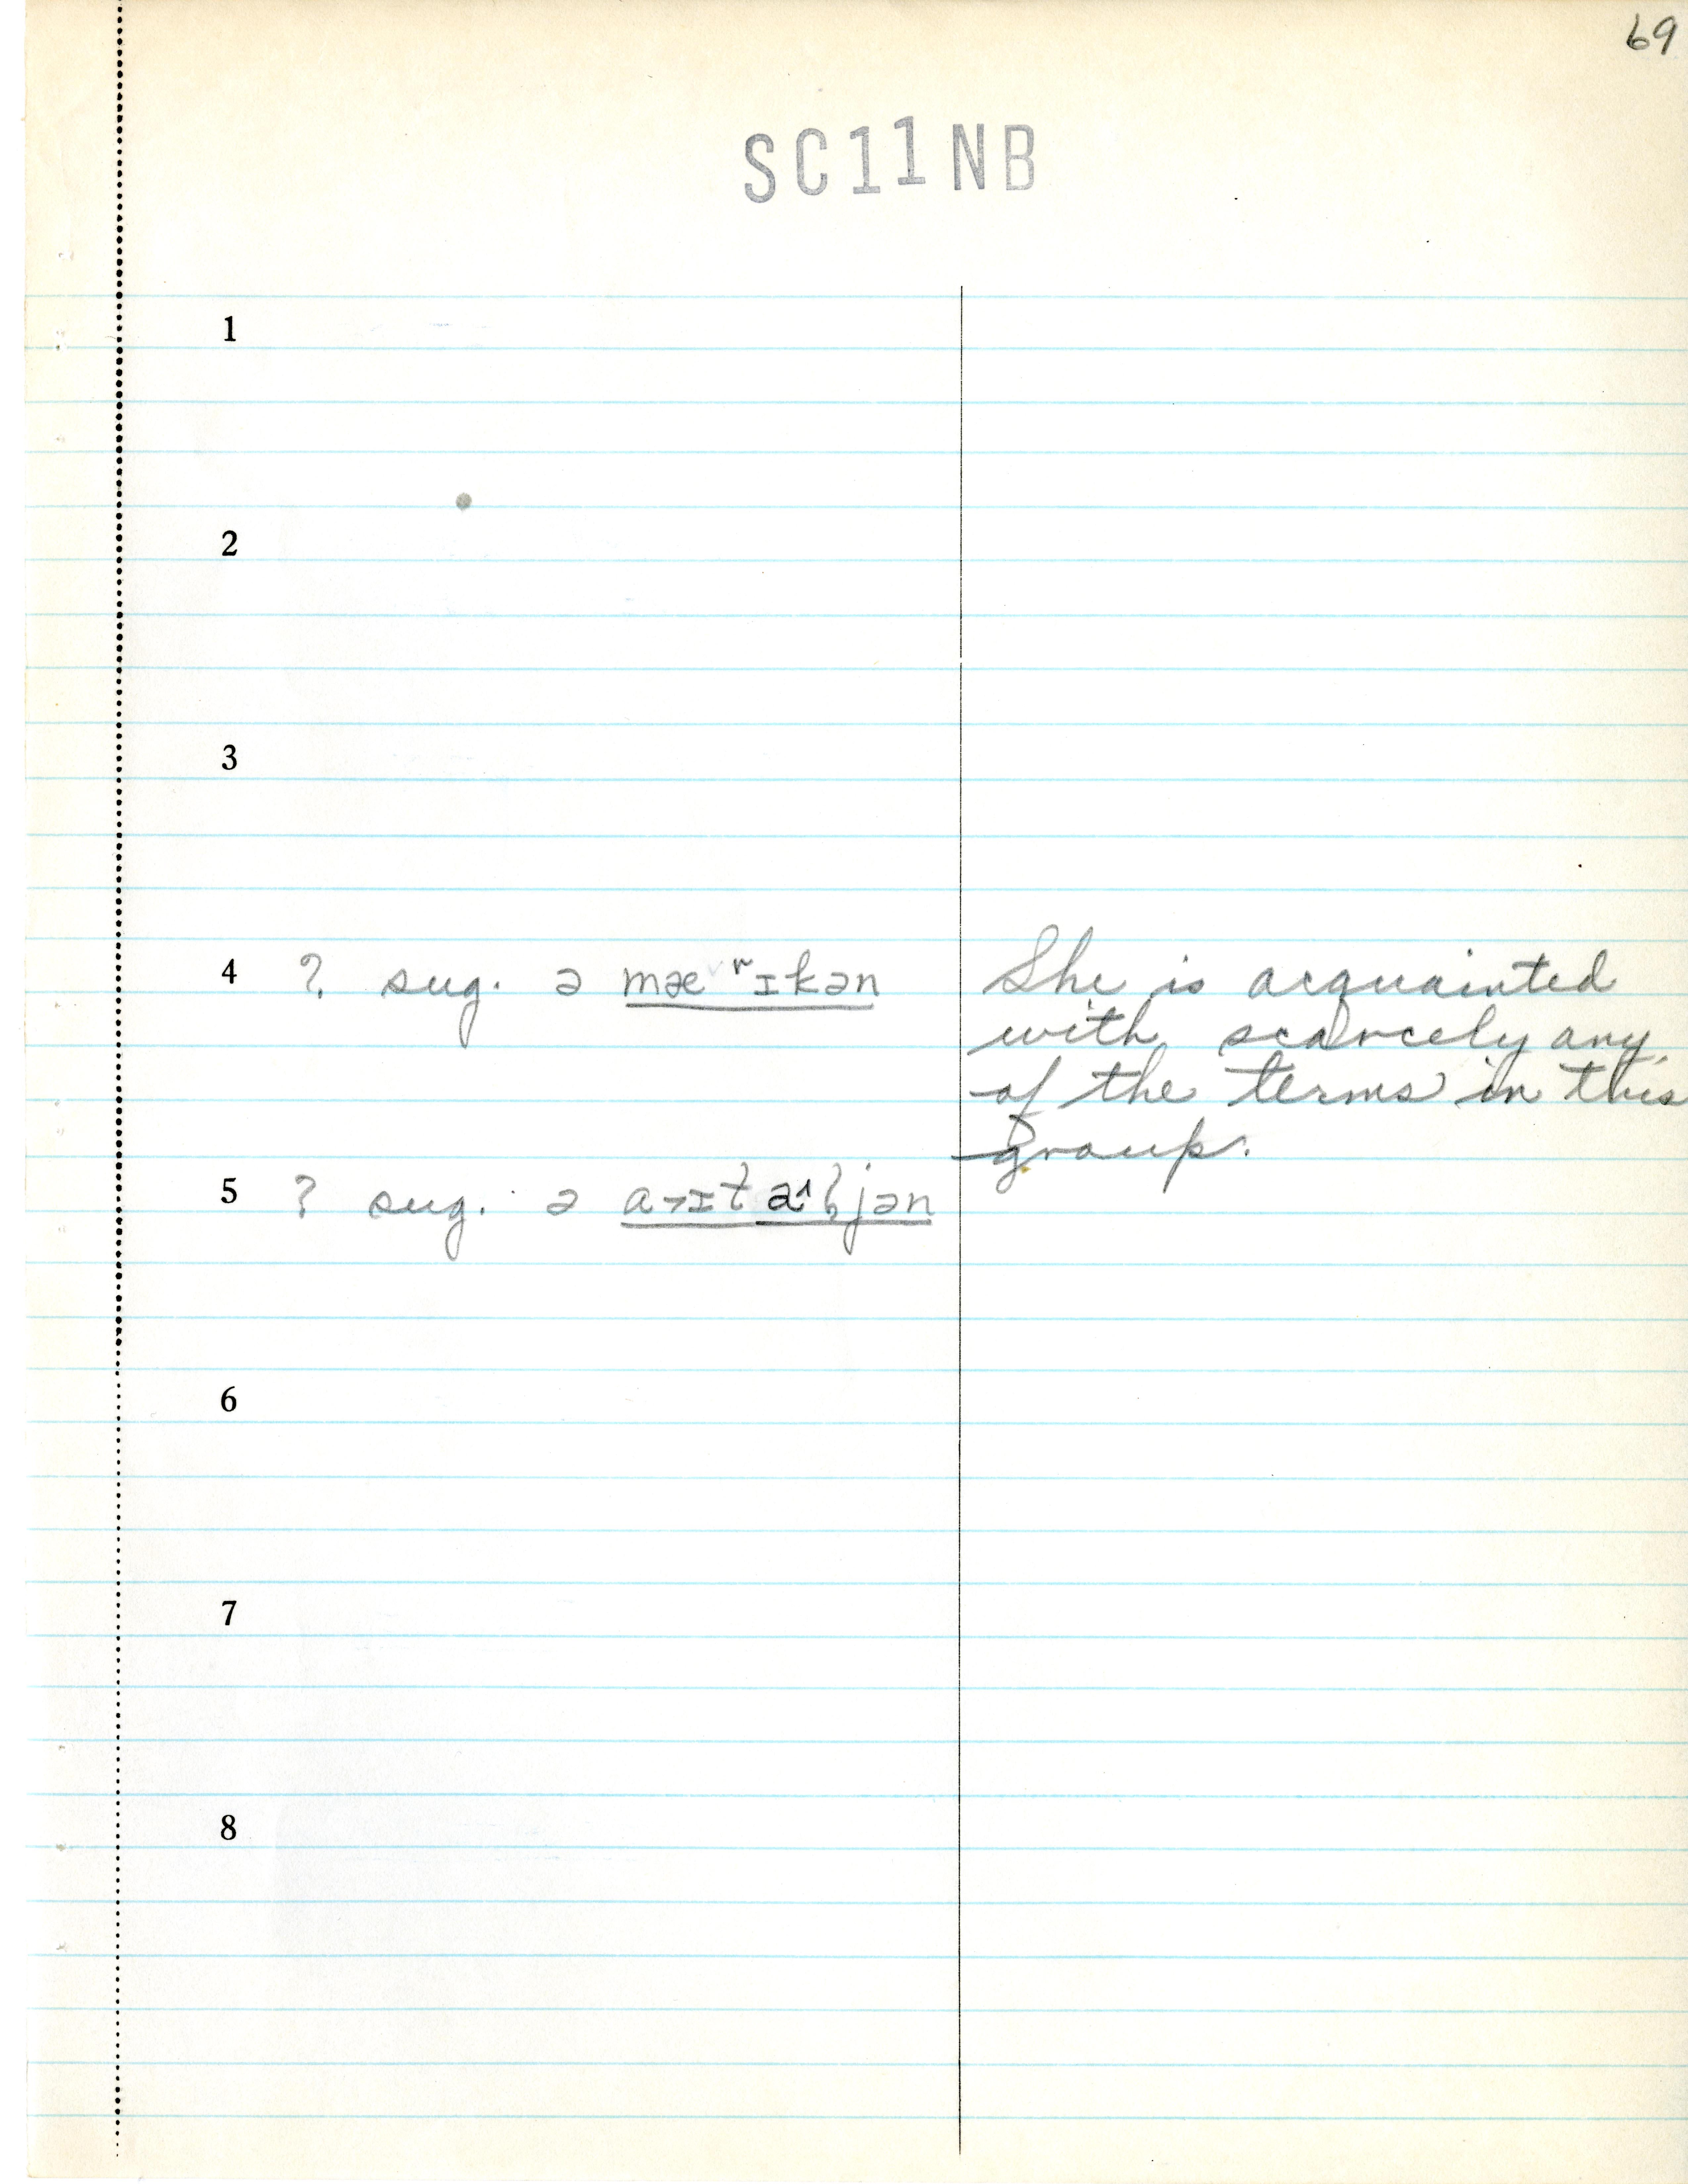 69
SC11NB
1
2
3
4 ? sug. ə mæ ʳɪkən
She is acquainted
with scarcely any
of the terms in this
group.
5 ? sug. ə
6
7
8